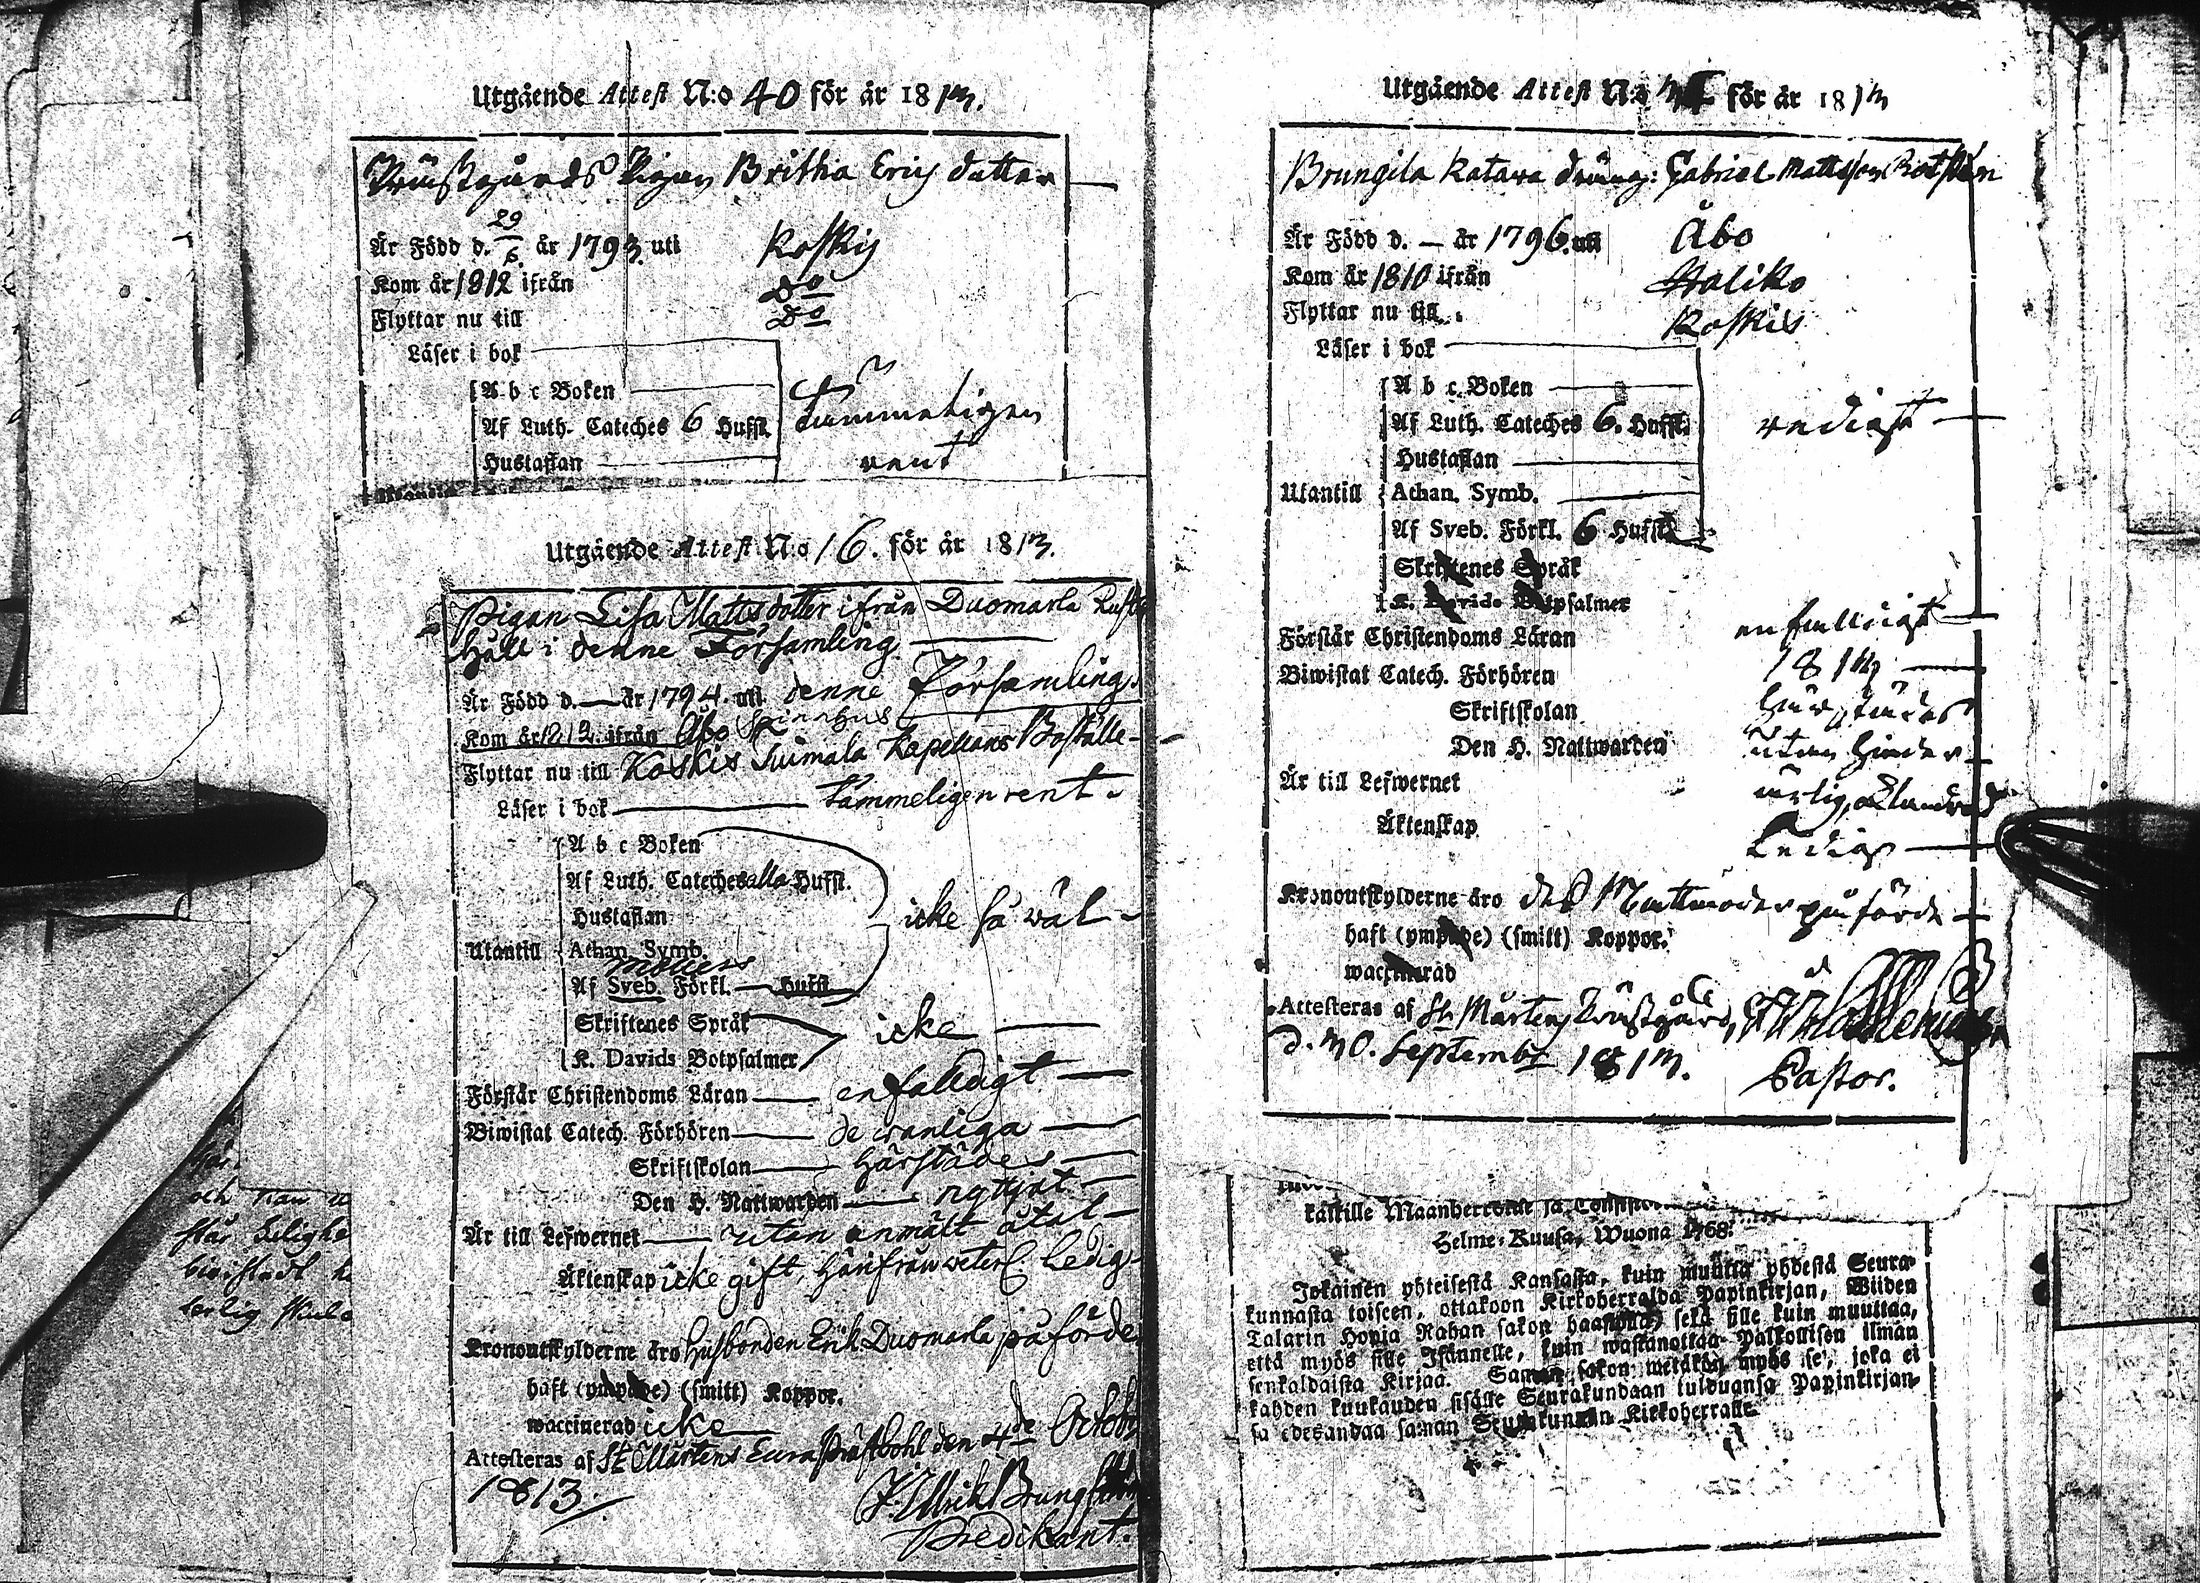 Utgående Attest N:o 40 för år 1813.
Prästgårds Pigan Britha Erics dotter
Är Född d. 29/6. år 1793. uti Koskis
Kom år 1812 ifrån Do
Flyttar nu till Do
Läser i bok
A b c Boken
Af Luth. Cateches 6 Hufst. tämmeligen
Hustaflan rent
Utgående Attest N:o 16. för år 1813.
Pigan Lisa Mattsdotter ifrån Duomarla Rust
håll i denne Församling
Är Född d. — år 1794. uti denne Församling.
Kom år 1812. ifrån Åbo Spinnhus
Flyttar nu till Koskis Suimala Kapellans Boställe
Läser i bok tämmeligen rent.
A b c Boken
Af Luth. Cateches alla Hufst.
Hustaflan icke så wäl
Utantill Athan. Symb.
Af Sveb. Förkl. Hufst.
Skriftenes Språk icke
K. Davids Botpsalmer
Förstår Christendoms Läran enfalldigt
Biwistat Catech. Förhören de wanliga
Skriftskolan härstädes
Den H. Nattwarden nyttjat
Är till Lefwernet utan anmält åtal
Äktenskap icke gift, härifrån weterl. ledig
Kronoutskylderne äro Husbonden Erik Duomarla påförde
haft (ympade) (smitt) Koppor.
waccinerad icke
Attesteras af St Mårtens Eura Prästbohl den 4de Octob
1813.
Predikant.
Utgående Attest N:o för år 1813
Brungila Katara dräng: Gabriel Mattsson
Är Född d. — år 1796. uti Åbo
Kom år 1810 ifrån Haliko
Flyttar nu till Koskis
Läser i bok
A b c Boken
Af Luth. Cateches 6. Hufst. redigt
Hustaflan
Utantill Athan. Symb.
Af Sveb. Förkl. 6 Hufst.
Skriftenes Språk
K. Davids Botpsalmer
Förstår Christendoms Läran enfalldigt
Biwistat Catech. Förhören 1813
Skriftskolan härstädes
Den H. Nattwarden utan hinder
Är till Lefwernet ärlig,
Äktenskap Ledig
Kronoutskylderne äro des Matmoder påförde
haft (ympade) (smitt) Koppor.
waccinerad
Attesteras af St Mårtens Prästgård,
d. 30. Septembr 1813. Pastor.
och
ledighe
Helme-Kuusa, Wuona 1768.
Jokainen yhteisestä Kansasta, kuin muutta yhdestä Seura-
kunnasta toiseen, ottakoon Kirkoherralda Papinkirjan, Wiiden
Talarin Hopia Rahan sakon haastolla, sekä sille kuin muuttaa,
että myös sille Isännelle, kuin wastanottaa Palkollisen ilman
senkaldaista Kirjaa. Saman sakon wetäkön myös se, joka ei
kahden kuukauden sisälle Seurakundaan tulduansa Papinkirjan-
sa edesandaa saman Seurakunnan Kirkoherralle.